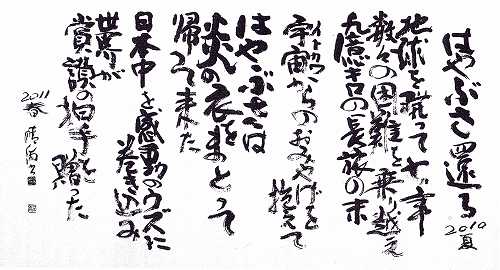 はやぶさ還る
2010夏
地球を発って七年
数々の困難を乗り越え
九億キロの長旅の末
イトカワ
宇宙からのおみやげを
抱えて
はやぶさは
炎の衣をまとって
帰って来た
日本中を感動のウズに
巻き込み
世界が
賞讃の拍手を贈った
2011
春